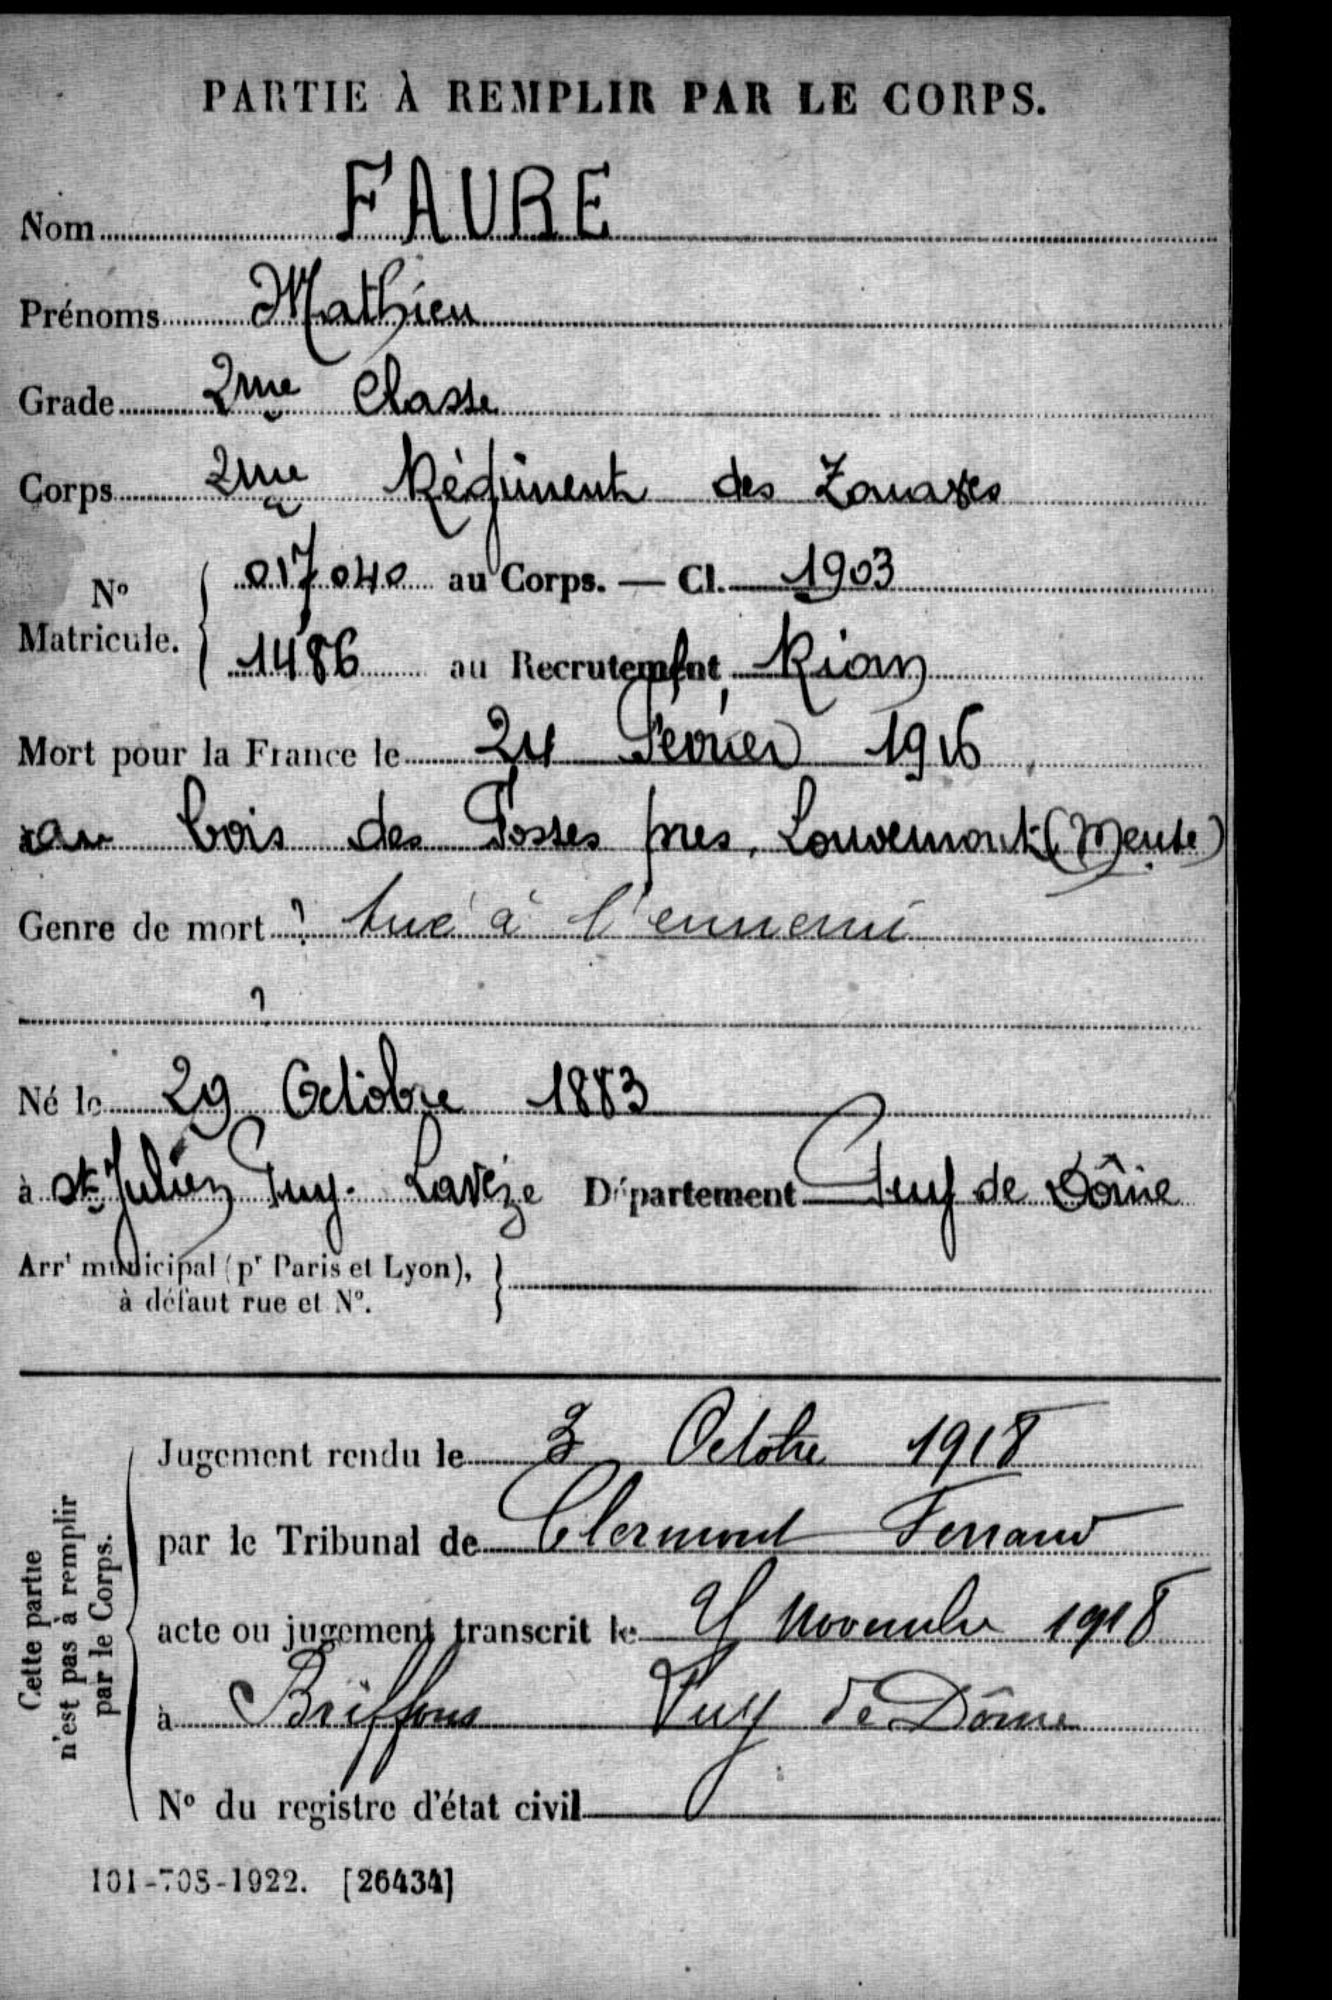 PARTIE À REMPLIR PAR LE CORPS.
Nom FAURE
Prénoms Mathieu
Grade 2me Classe
Corps 2me Régiment des Zouaves
No Matricule. 017040 au Corps. — Cl. 1903
1486 au Recrutement Riom
Mort pour la France le 24 Février 1916
au bois des Fosses près Louvemont (Meuse)
Genre de mort ? tué à l'ennemi
?
Né le 29 Octobre 1883
à St Julien Puy-Lavèze Département Puy de Dôme
Arrt municipal (pr Paris et Lyon),
à défaut rue et No.
Cette partie n'est pas à remplir par le Corps.
Jugement rendu le 3 Octobre 1918
par le Tribunal de Clermont Ferrand
acte ou jugement transcrit le Novembre 1918
à Briffons Puy de Dôme
No du registre d'état civil
101-708-1922. [26434]